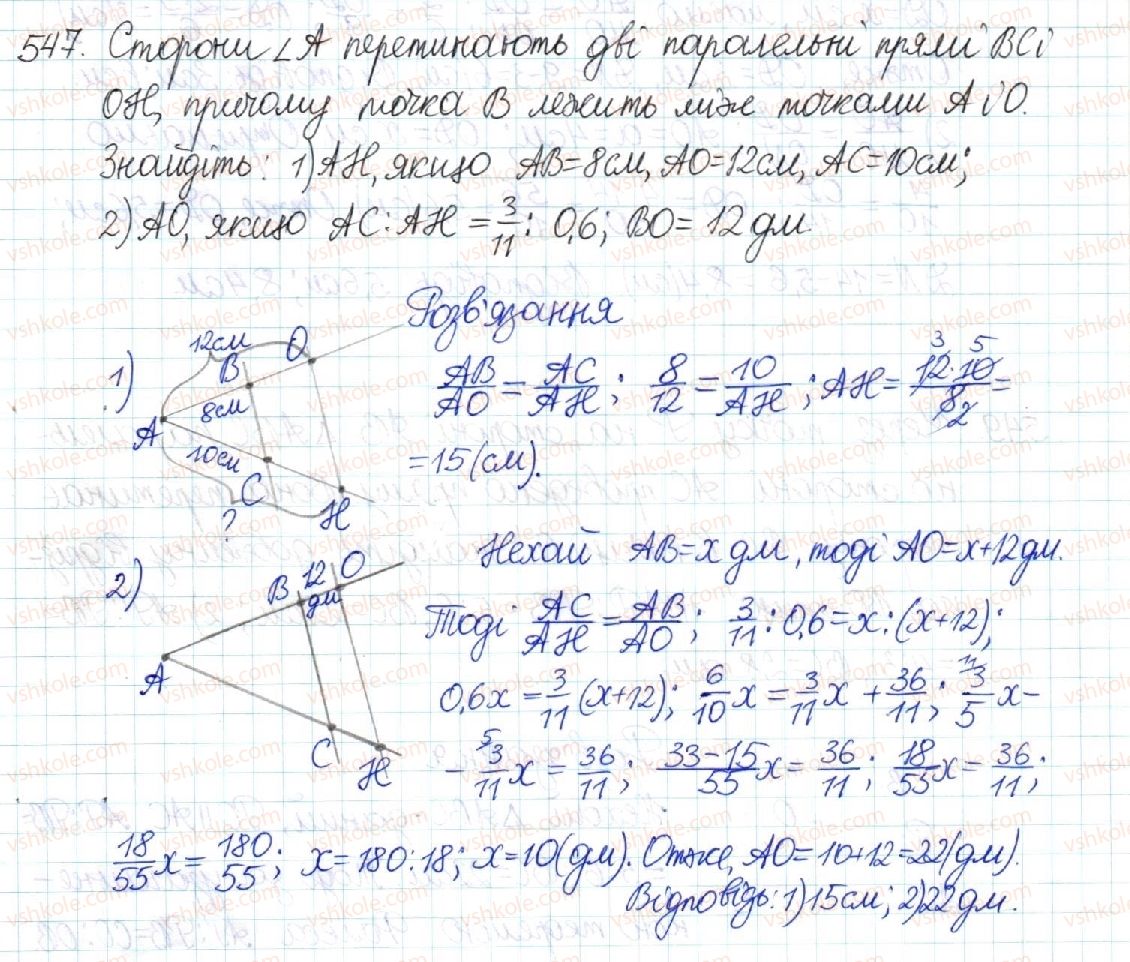 547. Сторони ∠A перетинають дві паралельні прямі BC і
OH, причому точка B лежить між точками A і O.
Знайдіть: 1) AH, якщо AB=8см, AO=12см, AC=10см;
2) AO, якщо AC:AH = 3/11 : 0,6; BO = 12 дм.
Розв'язання
1)
12см
O
B
8см
A
10см
C
H
?
AB/AO = AC/AH; 8/12 = 10/AH; AH = 12·10/8 =
3 5 2
= 15 (см).
2)
B 12 дм O
A
C
H
Нехай AB=x дм, тоді AO=x+12дм.
Тоді AC/AH = AB/AO; 3/11 : 0,6 = x:(x+12);
0,6x = 3/11 (x+12); 6/10 x = 3/11 x + 36/11; 11/ 3/5 x -
- 5/ 3/11 x = 36/11; 33-15/55 x = 36/11; 18/55 x = 36/11;
18/55 x = 180/55; x = 180:18; x = 10 (дм). Отже, AO = 10+12 = 22 (дм).
Відповідь: 1) 15см; 2) 22 дм.
vshkole.com